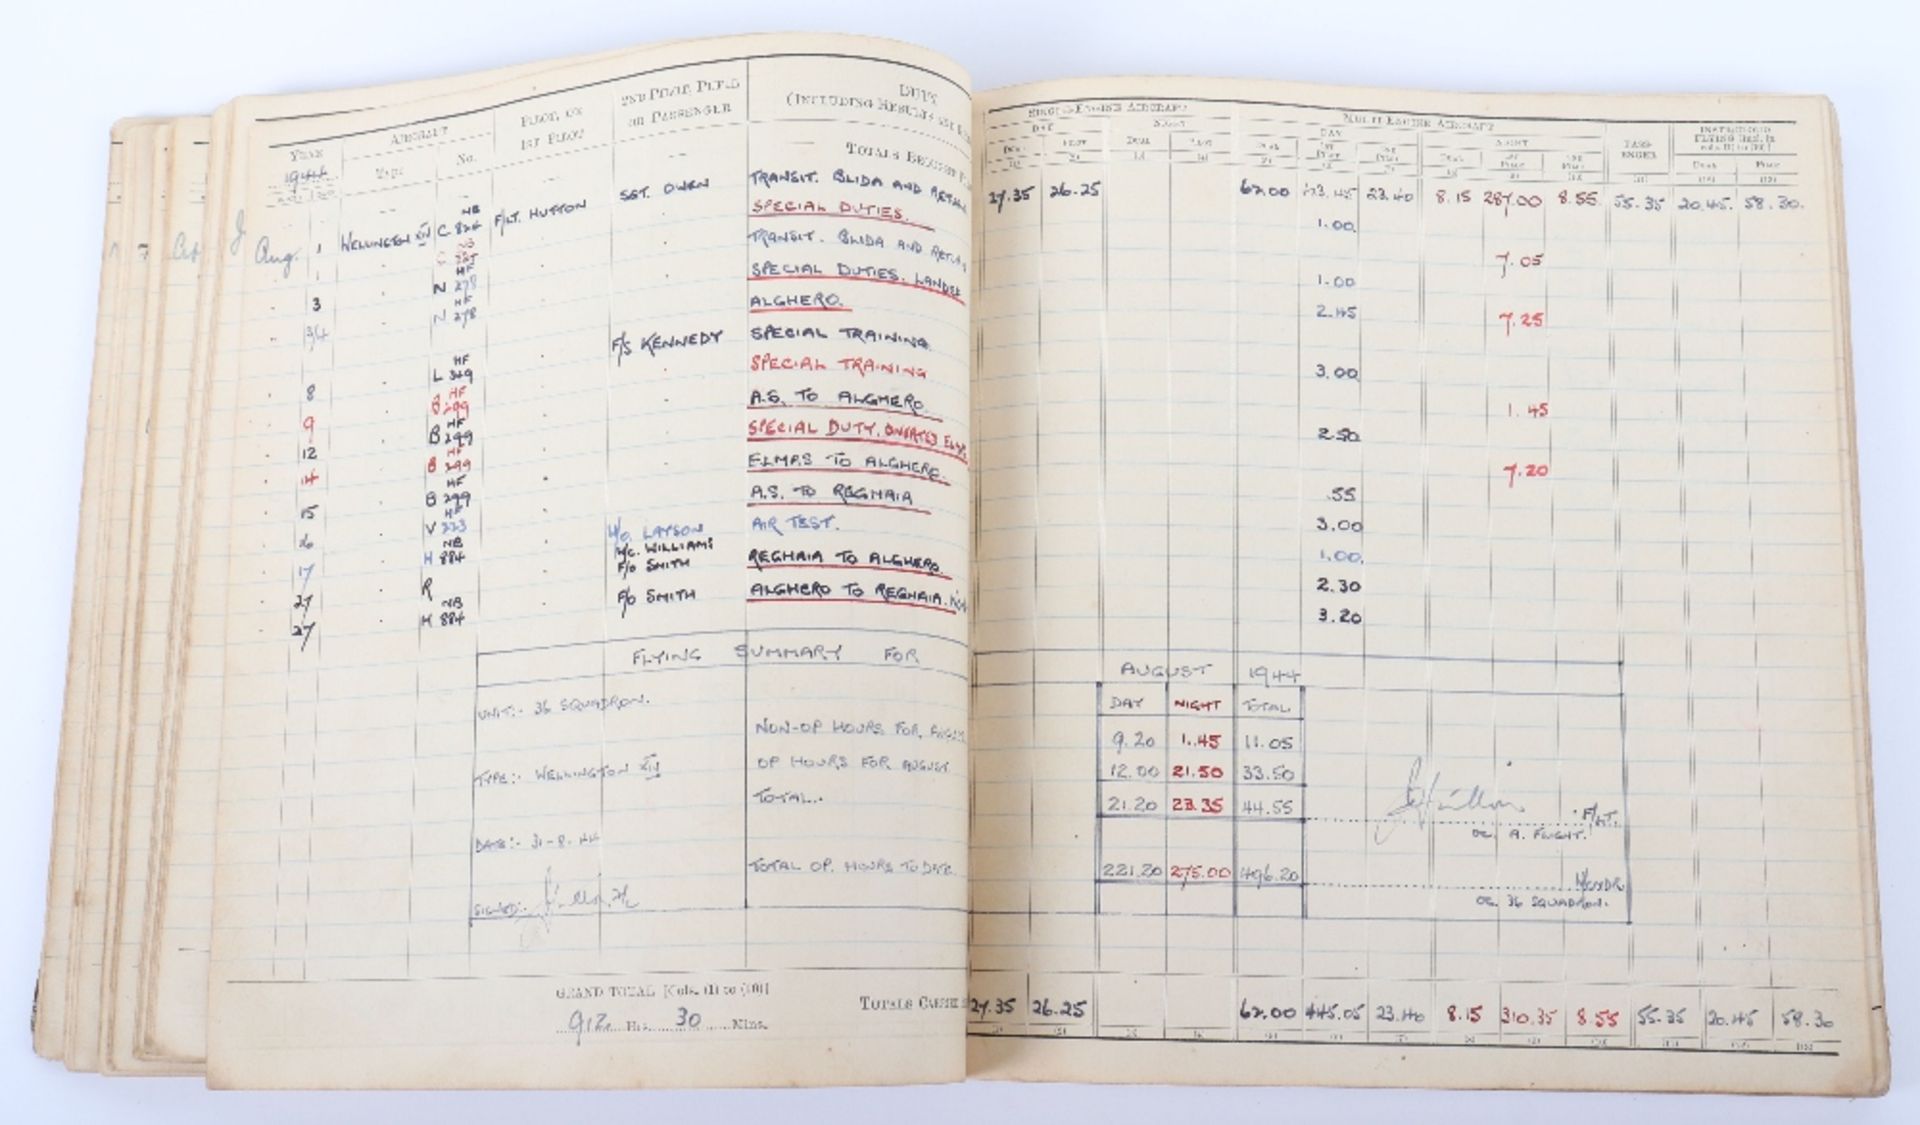 YEAR AIRCRAFT PILOT, OR 1ST PILOT 2ND PILOT, PUPIL OR PASSENGER DUTY (INCLUDING RESULTS AND
1944 Type No.
TOTALS BROUGHT
Aug. 1 WELLINGTON XIV C NB 824 F/LT. HUTTON SGT. OWEN TRANSIT. BLIDA AND RETURN
1 C NB SPECIAL DUTIES.
3 N HF 278 TRANSIT. BLIDA AND RETURN
3/4 N HF 278 SPECIAL DUTIES. LANDED
ALGHERO.
8 L HF 329 F/S KENNEDY SPECIAL TRAINING.
9 B HF 299 SPECIAL TRAINING
12 B HF 299 A.S. TO ALGHERO.
14 B HF 299 SPECIAL DUTY.
15 B HF 299 ELMAS TO ALGHERO.
V HF 223 A.S. TO REGHAIA
17 H NB 884 W/C. WILLIAMS AIR TEST.
27 R F/O SMITH REGHAIA TO ALGHERO.
27 H NB 884 F/O SMITH ALGHERO TO REGHAIA.
FLYING SUMMARY FOR
UNIT:- 36 SQUADRON.
NON-OP HOURS FOR
TYPE:- WELLINGTON XIV
OP HOURS FOR AUGUST
TOTAL.
DATE:- 31-8-44
TOTAL OP. HOURS TO DATE.
SIGNED:-
GRAND TOTAL [Cols. (1) to (10)]
912 Hrs. 30 Mins.
TOTALS CARRIED
SINGLE-ENGINE AIRCRAFT MULTI-ENGINE AIRCRAFT PASSENGER INSTR/CLOUD FLYING [Incl. in cols. (1) to (10)]
DAY NIGHT DAY NIGHT
DUAL PILOT DUAL PILOT DUAL 1ST PILOT 2ND PILOT DUAL 1ST PILOT 2ND PILOT DUAL PILOT
(1) (2) (3) (4) (5) (6) (7) (8) (9) (10) (11) (12) (13)
27.35 26.25 62.00 423.45 23.40 8.15 287.00 8.55 55.35 20.45 58.30.
1.00
7.05
1.00
2.45 7.25
3.00
1.45
2.50
7.20
.55
3.00
1.00
2.30
3.20
AUGUST 1944
DAY NIGHT TOTAL
9.20 1.45 11.05
12.00 21.50 33.50
21.20 23.35 44.55
F/LT.
OC. A. FLIGHT.
221.20 275.00 496.20
W/CMDR.
OC. 36 SQUADRON.
27.35 26.25 62.00 445.05 23.40 8.15 310.35 8.55 55.35 20.45 58.30
(1) (2) (3) (4) (5) (6) (7) (8) (9) (10) (11) (12) (13)